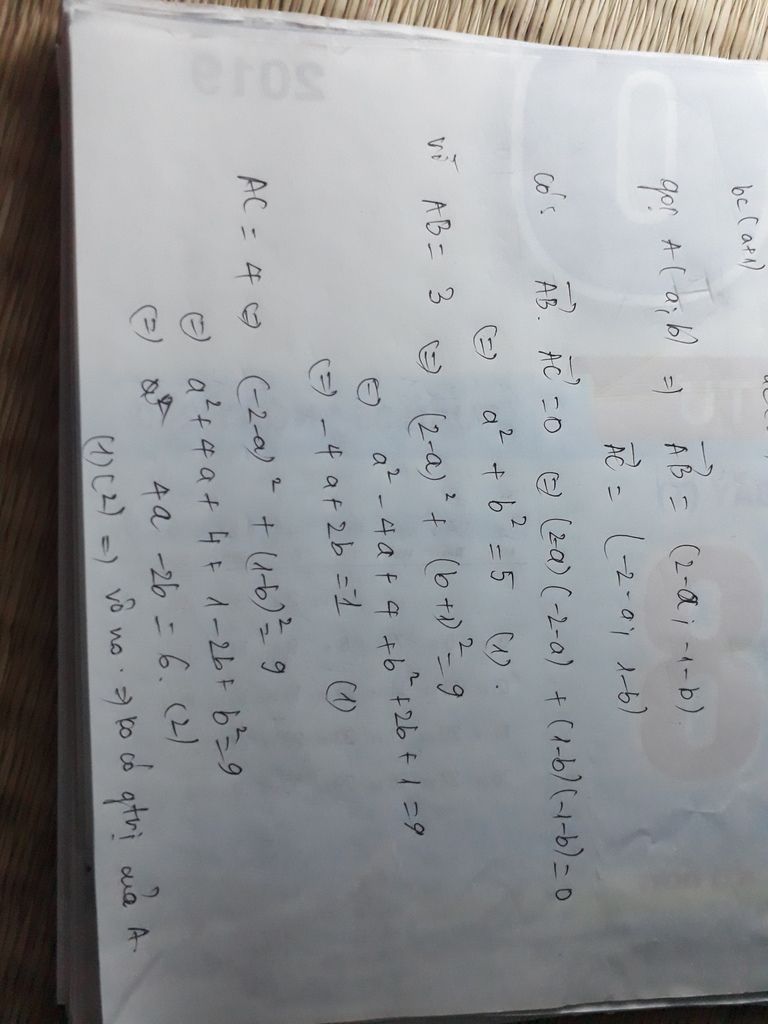 bc(a+1)
gọi A(a; b) => AB→ = (2-a; -1-b)
AC→ = (-2-a; 1-b)
có: AB→. AC→ = 0 (=) (2-a)(-2-a) + (1-b)(-1-b) = 0
(=) a² + b² = 5 (1).
Vì AB = 3 (=) (2-a)² + (b+1)² = 9
(=) a² - 4a + 4 + b² + 2b + 1 = 9
(=) -4a + 2b = -1 (1)
AC = 4 (=) (-2-a)² + (1-b)² = 9
(=) a² + 4a + 4 + 1 - 2b + b² = 9
(=) 4a - 2b = 6. (2)
(1)(2) => vô no. => ko có gtrị của A
2019
8